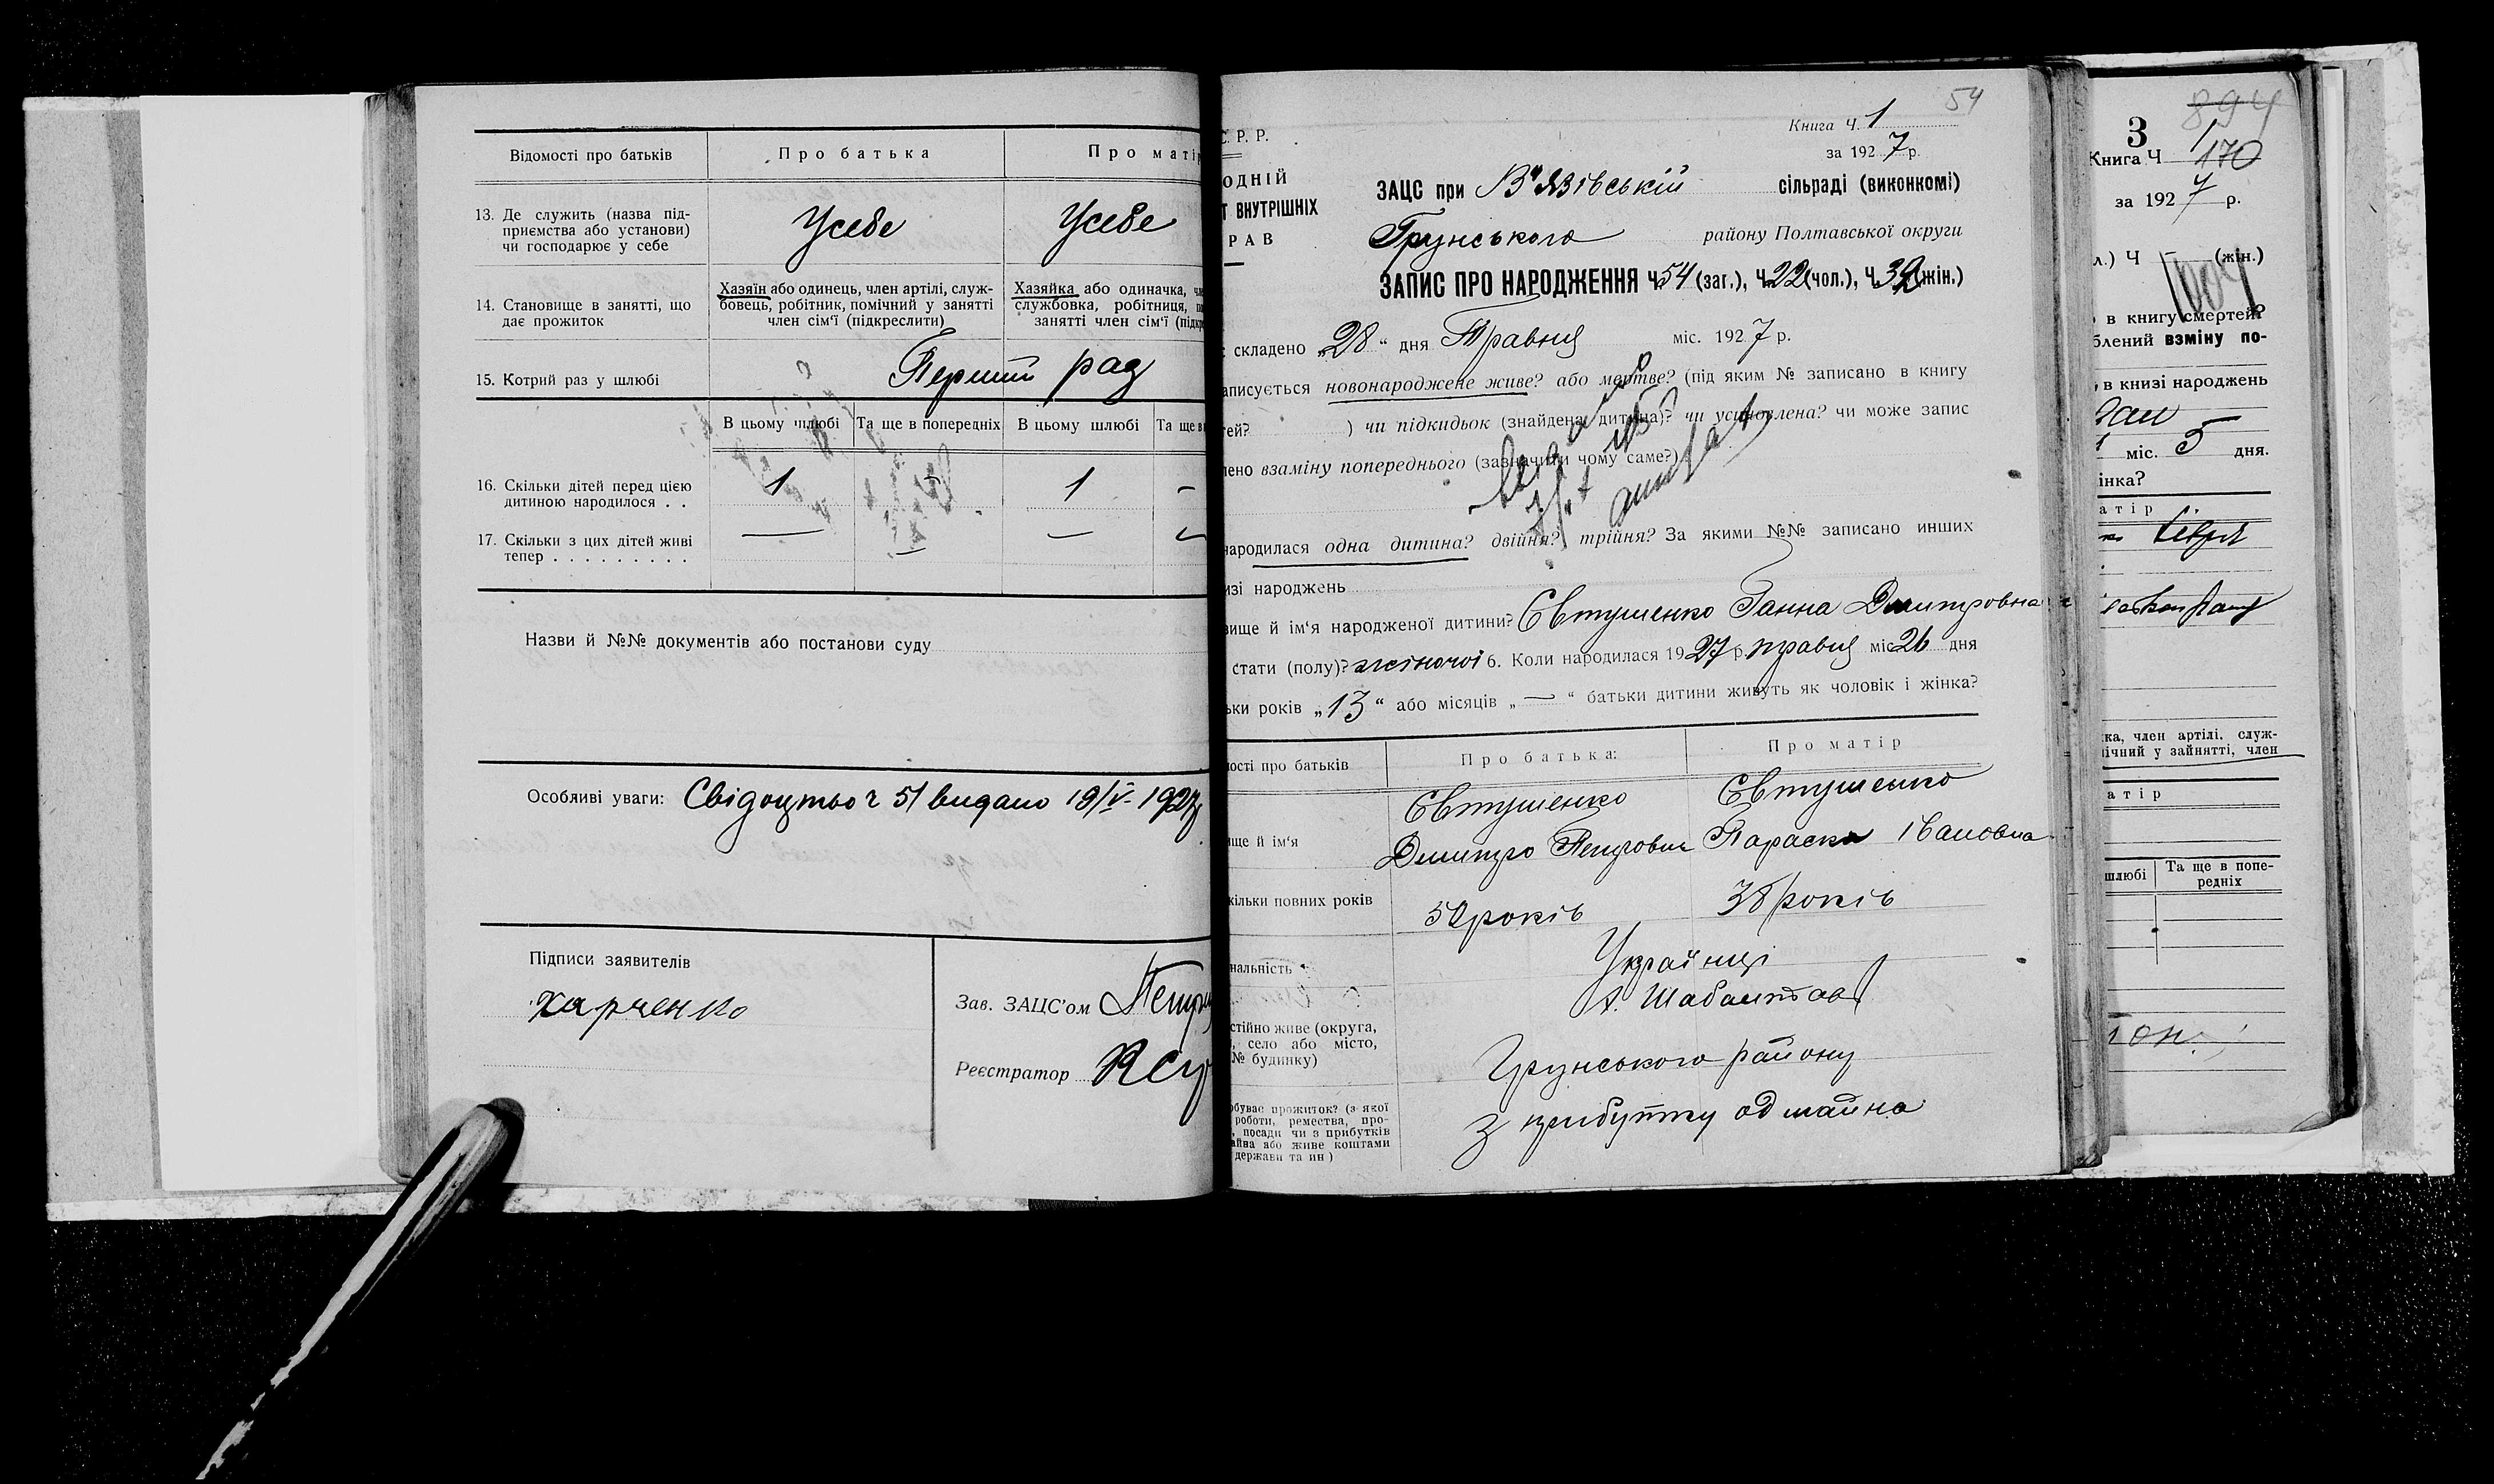 Відомості про батьків
Про батька
Про матір
13. Де служить (назва під-
приємства або установи)
чи господарює у себе
Усебе
Усебе
14. Становище в занятті, що
дає прожиток
Хазяїн або одинець, член артілі, служ-
бовець, робітник, помічний у занятті
член сім'ї (підкреслити)
Хазяйка або одиначка, чл
службовка, робітниця, п
занятті член сім'ї (підкре
15. Котрий раз у шлюбі
Перший раз
В цьому шлюбі
Та ще в попередніх
В цьому шлюбі
Та ще в
16. Скільки дітей перед цією
дитиною народилося . .
1
1
—
17. Скільки з цих дітей живі
тепер . . . . . . . . .
—
—
—
Назви й №№ документів або постанови суду
Особливі уваги: Свідоцтво ч 51 видано 19/V-1927
Підписи заявителів
Харченко
Зав. ЗАЦС'ом
Реєстратор
54
С.Р.Р.
ОДНІЙ
Т ВНУТРІШНІХ
РАВ
Книга Ч. 1
за 1927 р.
ЗАЦС при В'язівській сільраді (виконкомі)
Грунського району Полтавської округи
ЗАПИС ПРО НАРОДЖЕННЯ Ч. 54 (заг.), Ч. 22 (чол.), Ч. 32 (жін.)
складено „28“ дня Травня міс. 1927 р.
аписується новонароджене живе? або мертве? (під яким № записано в книгу
тей? ) чи підкидьок (знайдена дитина)? чи усиновлена? чи може запис
лено взаміну попереднього (зазначити чому саме?)
народилася одна дитина? двійня? трійня? За якими №№ записано инших
изі народжень
вище й ім'я народженої дитини? Євтушенко Ганна Дмитровна
стати (полу)? жіночої 6. Коли народилася 1927 р. травня міс 26 дня
ьки років „13“ або місяців „—“ батьки дитини живуть як чоловік і жінка?
ності про батьків
Про батька:
Про матір
ище й ім'я
Євтушенко
Дмитро Петрович
Євтушенко
Параска Івановна
кільки повних років
50 років
38 років
нальність
Українці
стійно живе (округа,
, село або місто,
№ будинку)
х. Шабалтаєв
Грунського району
обуває прожиток? (з якої
роботи, ремества, про-
, посади чи з прибутків
айна або живе коштами
держави та ин)
з прибутку од майна
894
3
Книга Ч 1
170
за 1927 р.
л.) Ч — (жін.)
в книгу смертей?
блений взміну по-
, в книзі народжень
міс. 5 дня.
інка?
атір
ка, член артілі, служ-
ічний у зайнятті, член
атір
шлюбі
Та ще в попе-
редніх